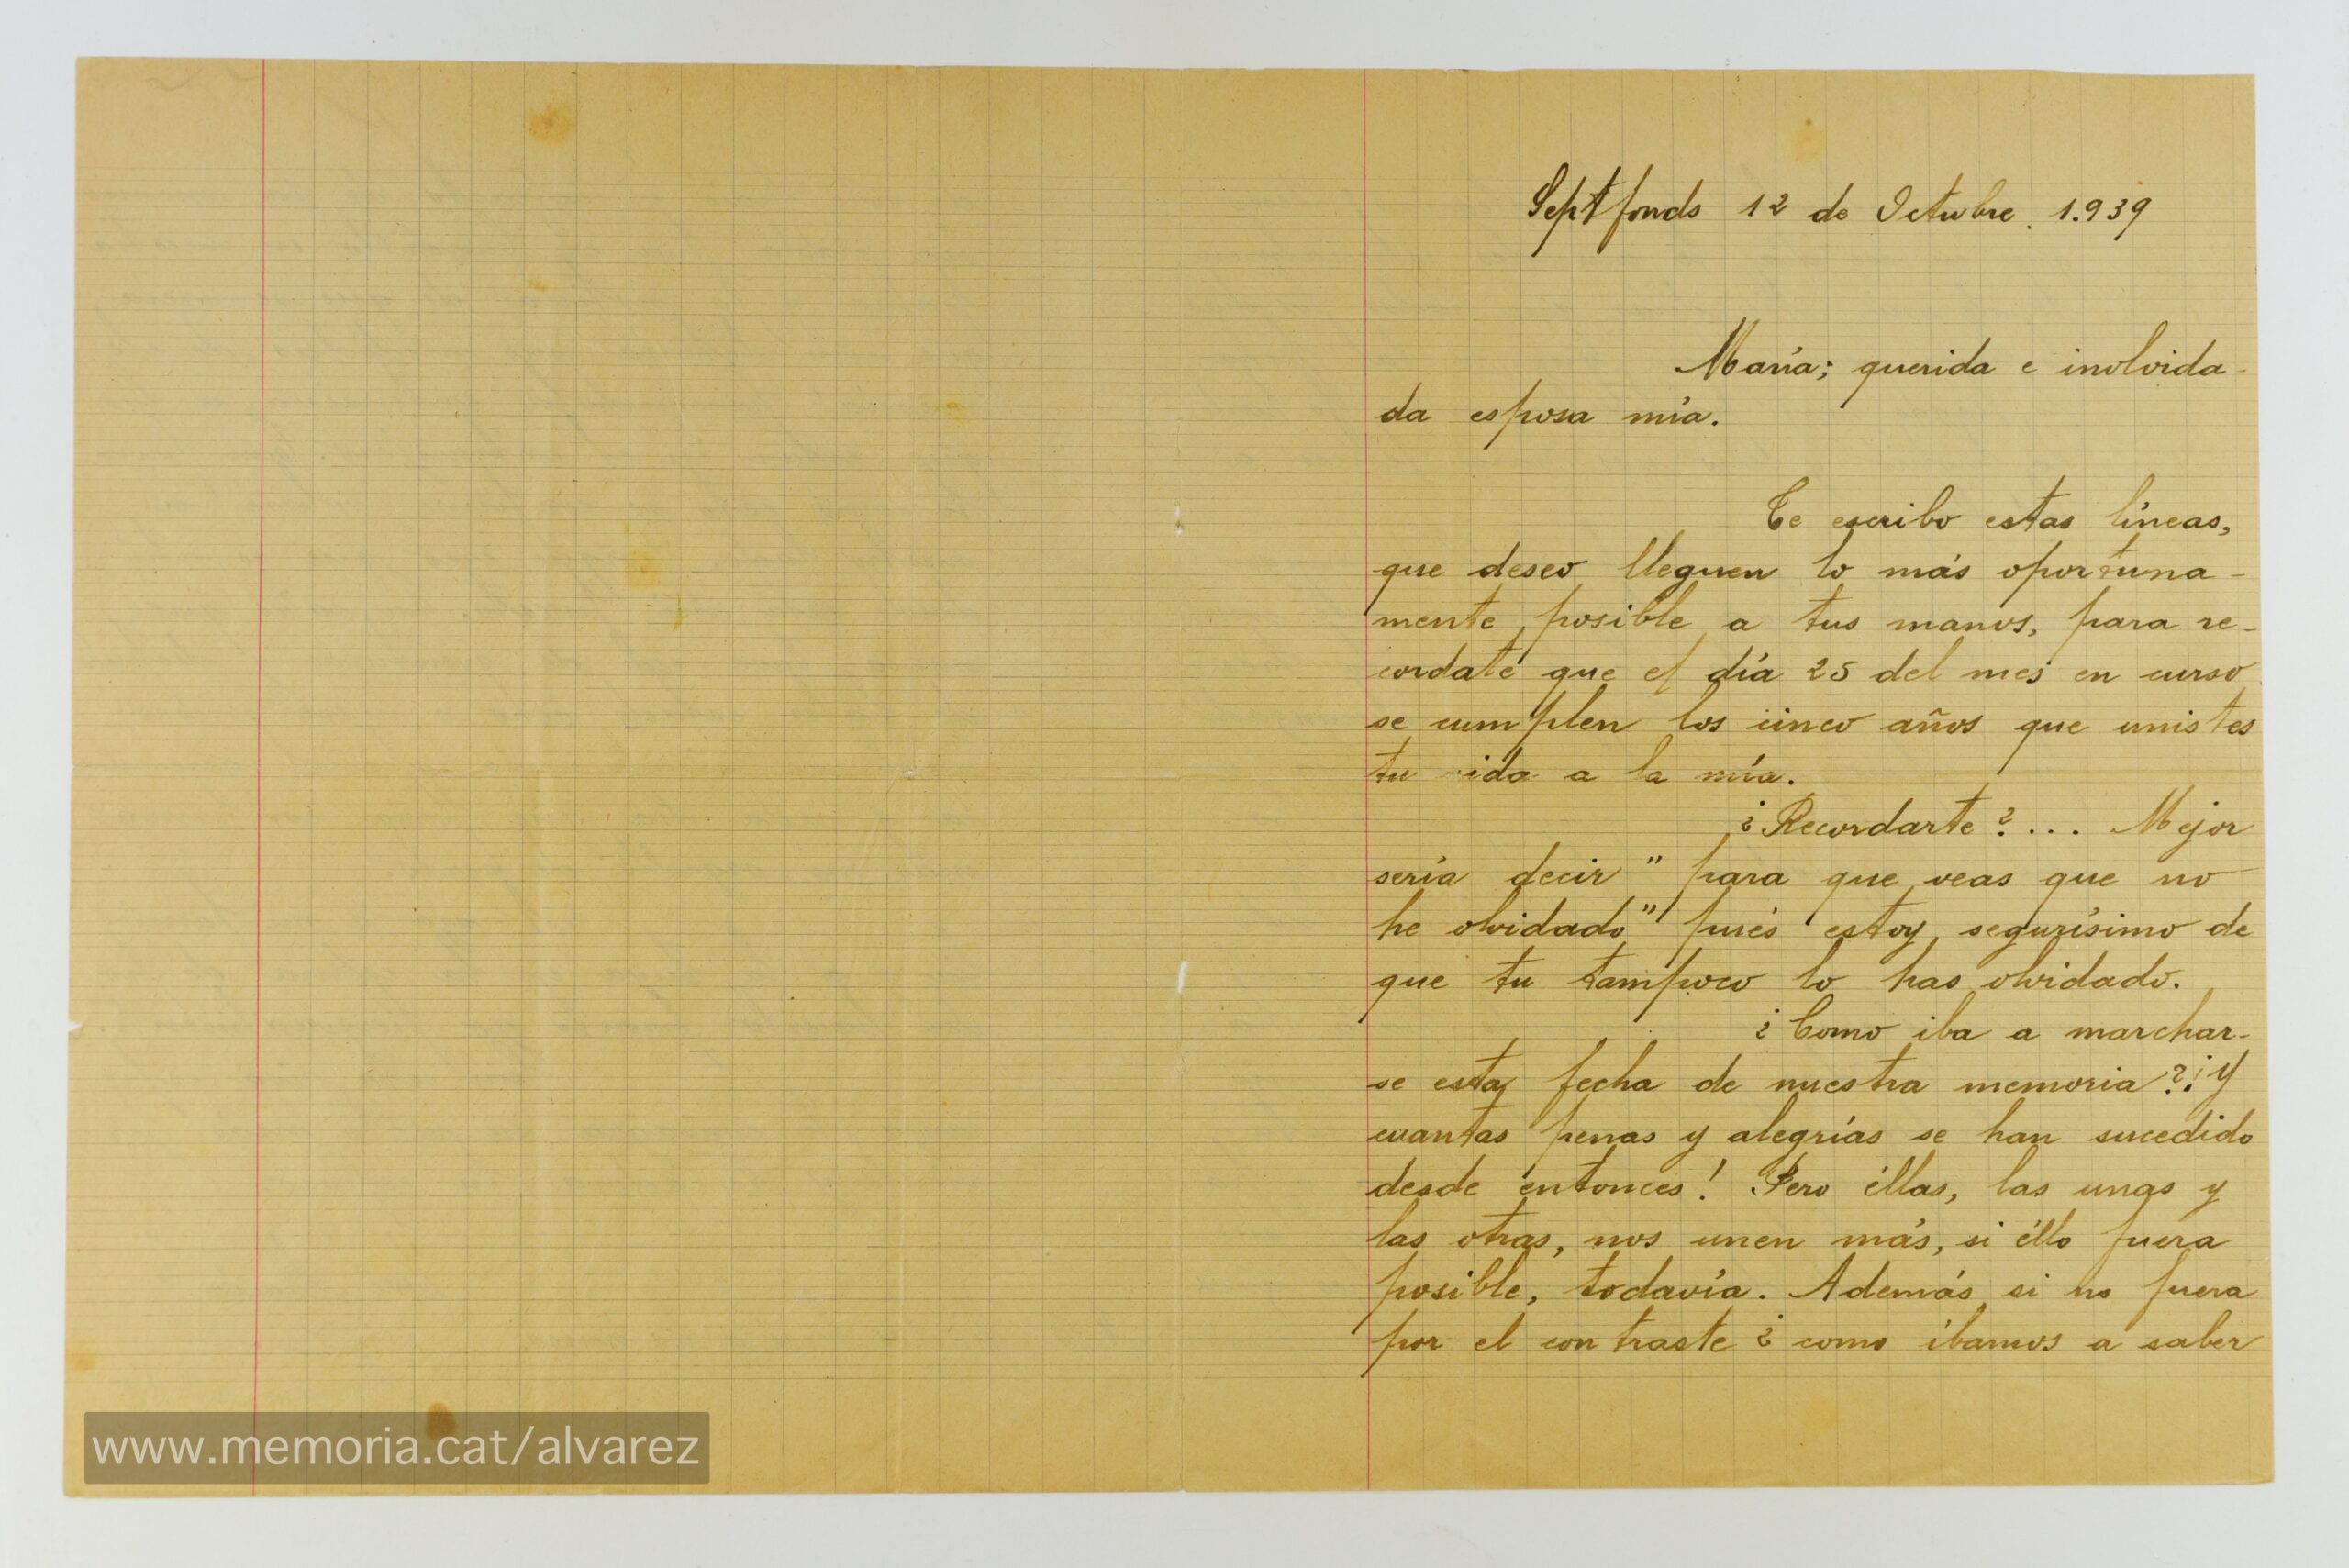 Septfonds 12 de Octubre. 1.939
María; querida e inolvida-
da esposa mía.
Te escribo estas líneas,
que deseo lleguen lo más oportuna-
mente posible a tus manos, para re-
cordate que el día 25 del mes en curso
se cumplen los cinco años que unistes
tu vida a la mía.
¿Recordarte?... Mejor
sería decir "para que veas que no
he olvidado" pués estoy segurísimo de
que tu tampoco lo has olvidado.
¿Como iba a marchar-
se esta fecha de nuestra memoria? ¡Y
cuantas penas y alegrías se han sucedido
desde entonces! Pero éllas, las unas y
las otras, nos unen más, si éllo fuera
posible, todavía. Además si no fuera
por el contraste ¿como íbamos a saber
www.memoria.cat/alvarez